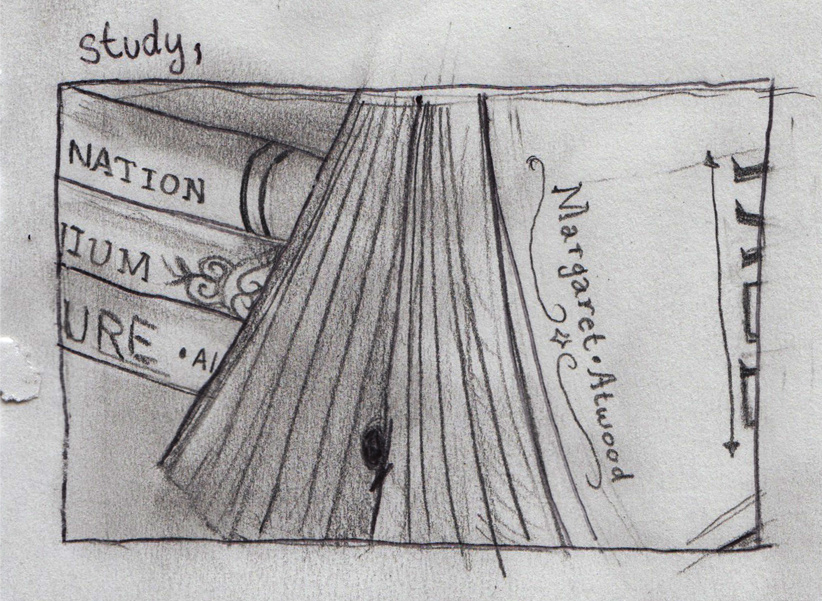 study,
NATION
IUM
URE • AI
Margaret • Atwood